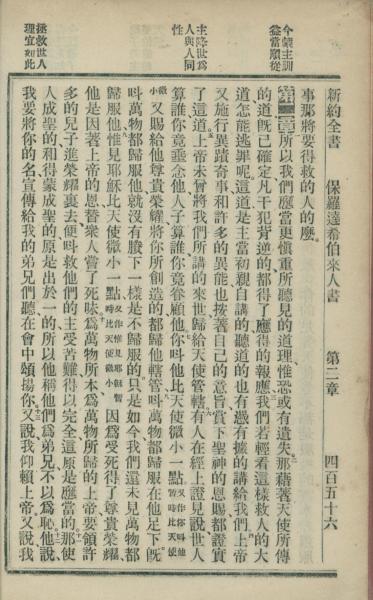 新約全書 保羅達希伯來人書 第二章 四百五十六
今蒙主訓
益當順從
主降世爲
人與人同
性
拯救世人
理宜如此
事那將要得救的人的麽
第二章所以我們應當更愼重所聽見的道理惟恐或有遺失那藉著天使所傳
的道旣已確定凡干犯背逆的都得了應得的報應我們若輕看這樣救人的大
道怎能逃罪呢這道是主當初親自講的聽道的也有憑有據的講給我們上帝
又施行異蹟奇事和許多的異能也按著自己的意旨賞下聖神的恩賜都證實
了這道上帝未曾將我們所講的來世歸給天使管轄有人在經上證見說世人
算誰你竟垂念他人子算誰你竟眷顧他你呌他比天使微小一點又作你呌他暫時比天使
微小又賜給他尊貴榮耀將你所創造的都歸他轄管呌萬物都歸服在他足下旣
呌萬物都歸服他就沒有賸下一樣是不歸服的只是如今我們還未見萬物都
歸服他惟見耶穌比天使微小一點又作惟見耶穌暫時比天使微小因爲受死得了尊貴榮耀
他是因著上帝的恩替衆人嘗了死味爲萬物所本爲萬物所歸的上帝要領許
多的兒子進榮耀裏去便呌救他們的主受苦難得以完全這原是應當的那使
人成聖的和得蒙成聖的原是出於一的所以他稱他們爲弟兄不以爲恥他說
我要將你的名宣傳給我的弟兄們聽在會中頌揚你又說我仰賴上帝又說我